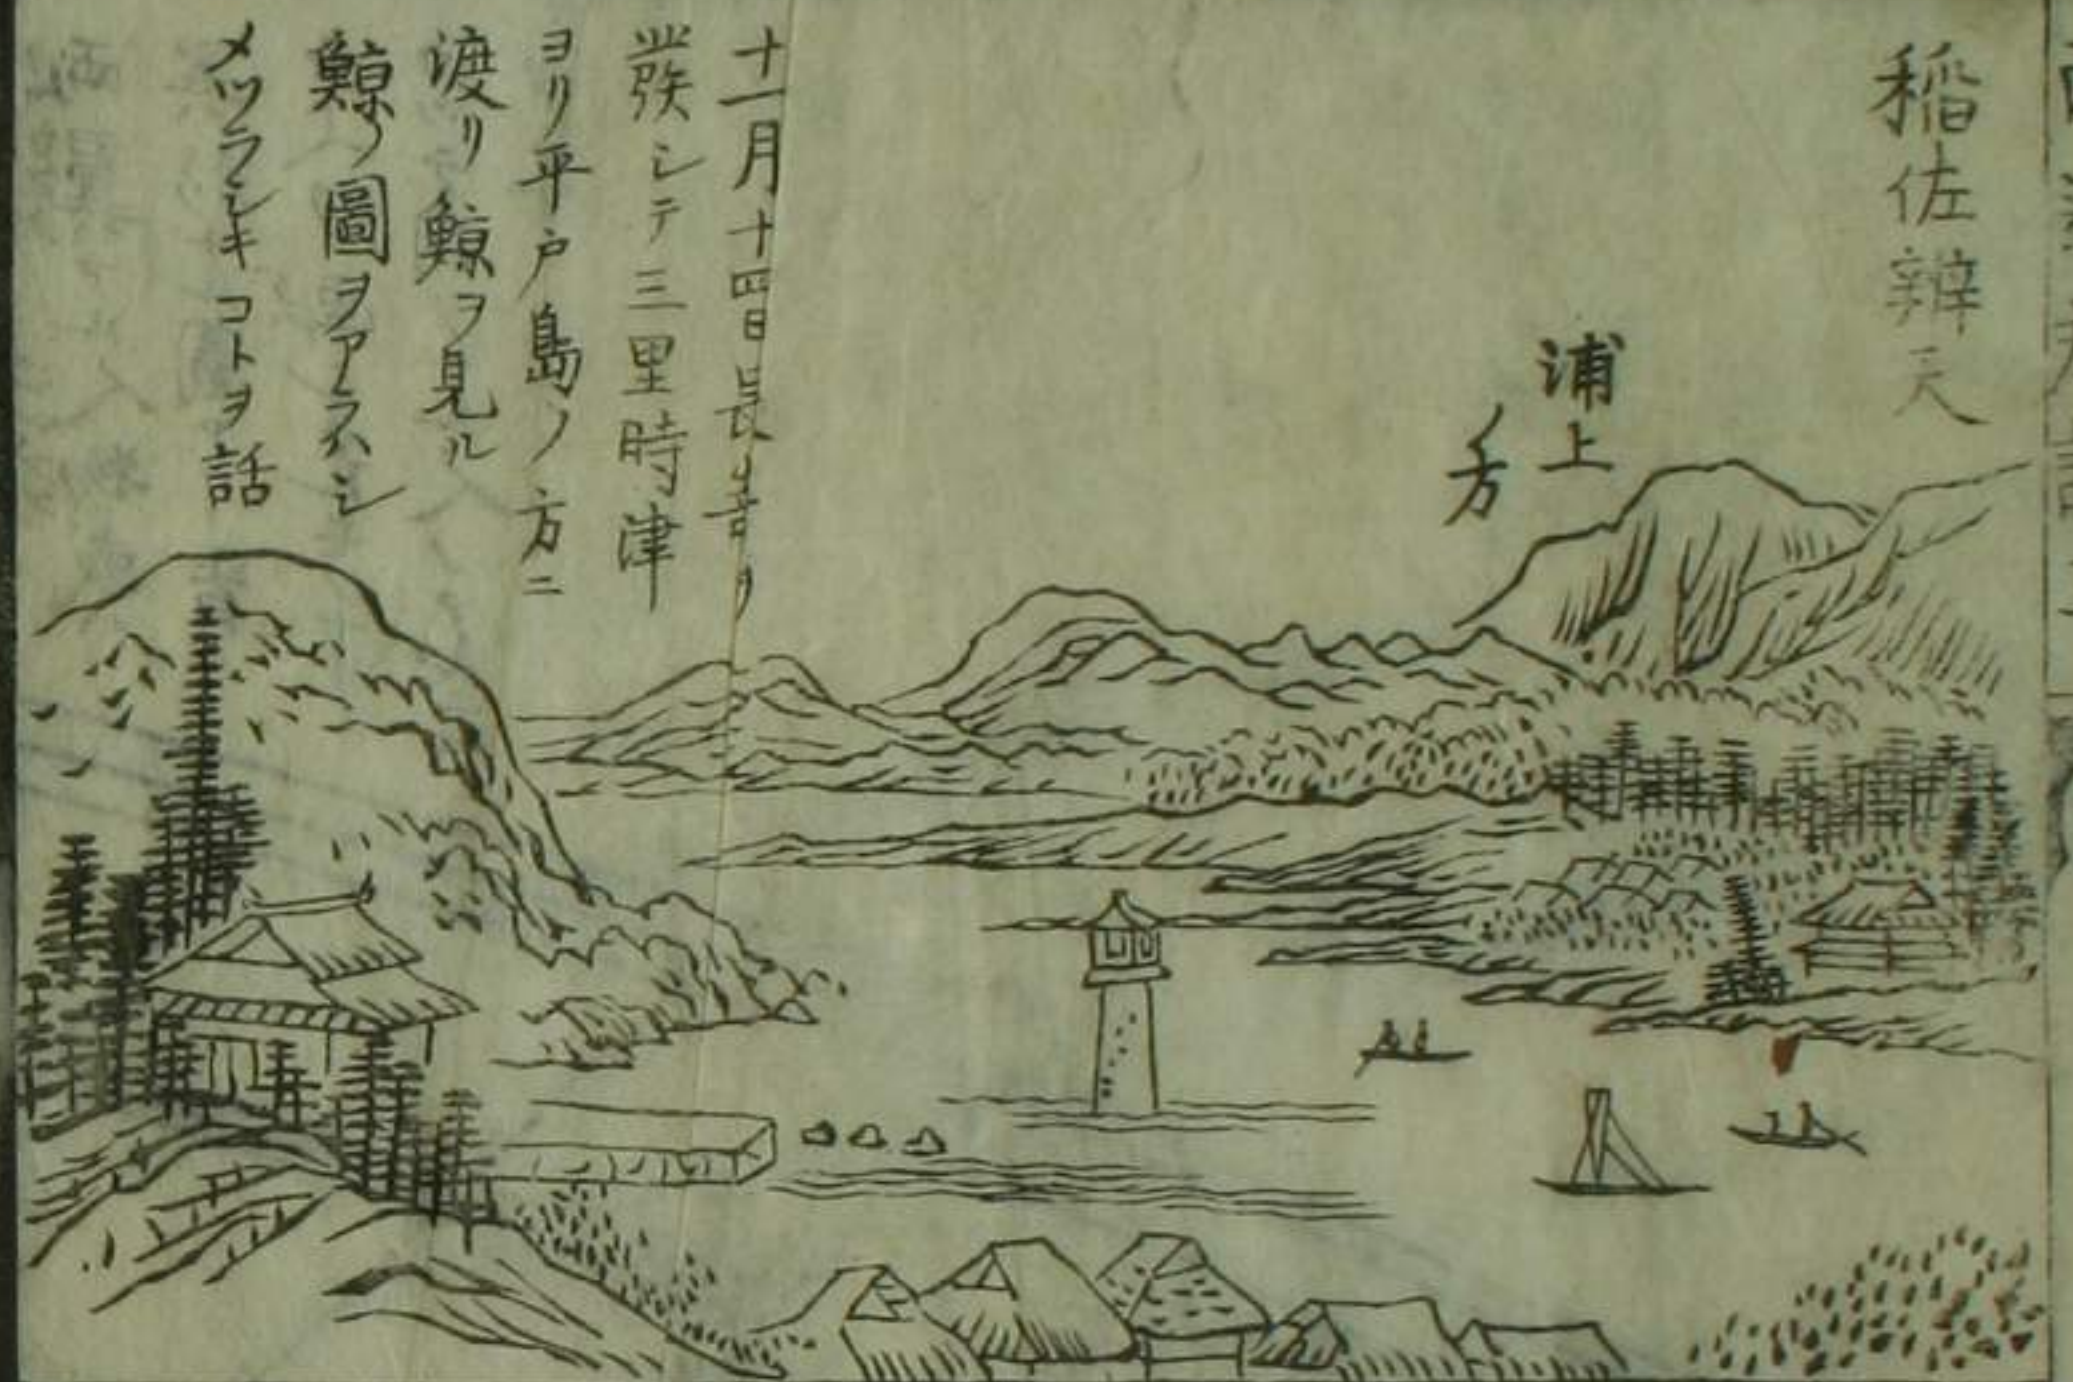 稲佐辨天
浦上
ノ方
十一月十四日長﨑ヲ
發シテ三里時津
ヨリ平戸島ノ方ニ
渡リ鯨ヲ見ル
鯨ノ圖ヲアラハシ
メツラシキコトヲ話